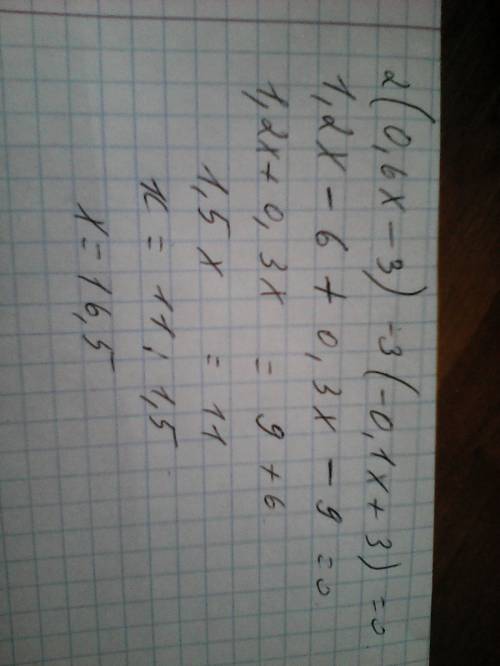 2(0,6x-3)-3(-0,1x+3)=0
1,2x-6+0,3x-9=0
1,2x+0,3x=9+6
1,5x=11
x=11:1,5
x=16,5